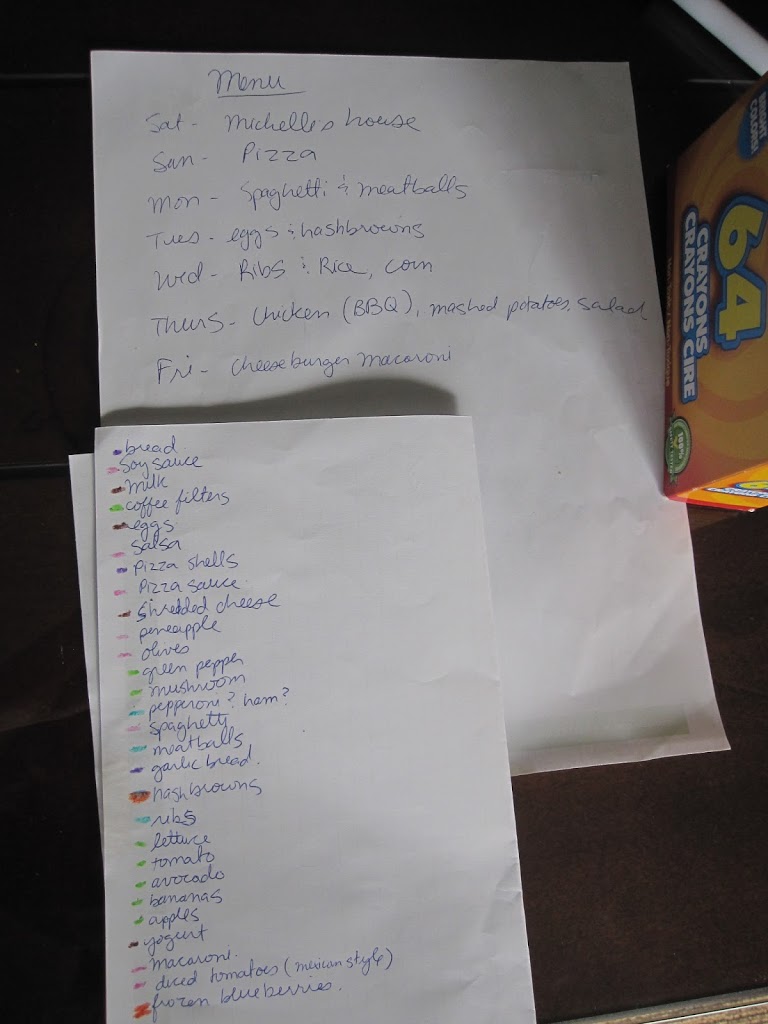 Menu
Sat - Michelle's house
Sun - Pizza
Mon - Spaghetti & meatballs
Tues - eggs & hashbrowns
Wed - Ribs & Rice, corn
Thurs - Chicken (BBQ), mashed potatoes, salad
Fri - Cheeseburger macaroni
bread
soy sauce
milk
coffee filters
eggs
salsa
pizza shells
pizza sauce
shredded cheese
peneapple
olives
green pepper
mushroom
pepperoni? ham?
spaghetti
meatballs
garlic bread.
hashbrowns
ribs
lettuce
tomato
avocado
bananas
apples
yogurt
macaroni.
diced tomatoes (mexican style)
frozen blueberries.
64
CRAYONS
CRAYONS CIRE
BRIGHT
COLORS
100%